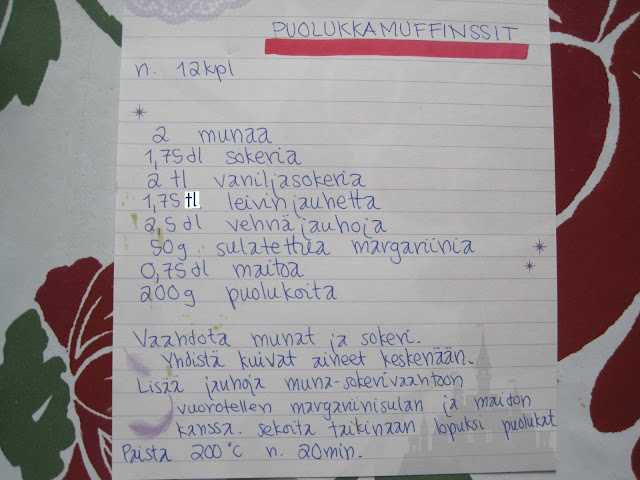 PUOLUKKAMUFFINSSIT
n. 12kpl
2 munaa
1,75 dl sokeria
2 tl vaniljasokeria
1,75 tl leivinjauhetta
2,5 dl vehnäjauhoja
50g sulatettua margariinia
0,75 dl maitoa
200 g puolukoita
Vaahdota munat ja sokeri.
Yhdistä kuivat aineet keskenään.
Lisää jauhoja muna-sokerivaahtoon
vuorotellen margariinisulan ja maidon
kanssa. Sekoita taikinaan lopuksi puolukat
Paista 200°C n. 20min.